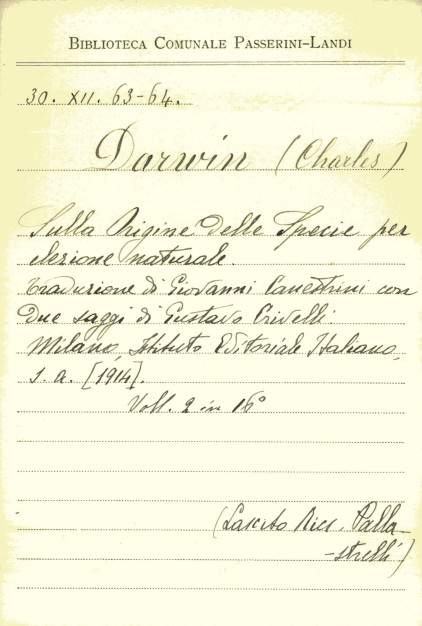 BIBLIOTECA COMUNALE PASSERINI-LANDI
30. XII. 63-64.
Darwin (Charles)
Sulla Origine delle Specie per
elezione naturale.
Traduzione di Giovanni Canestrini con
due saggi di Gustavo Crivelli.
Milano, Istituto Editoriale Italiano,
s. a. [1914].
Voll. 2 in 16°
(Lascito Palla-
-strelli)